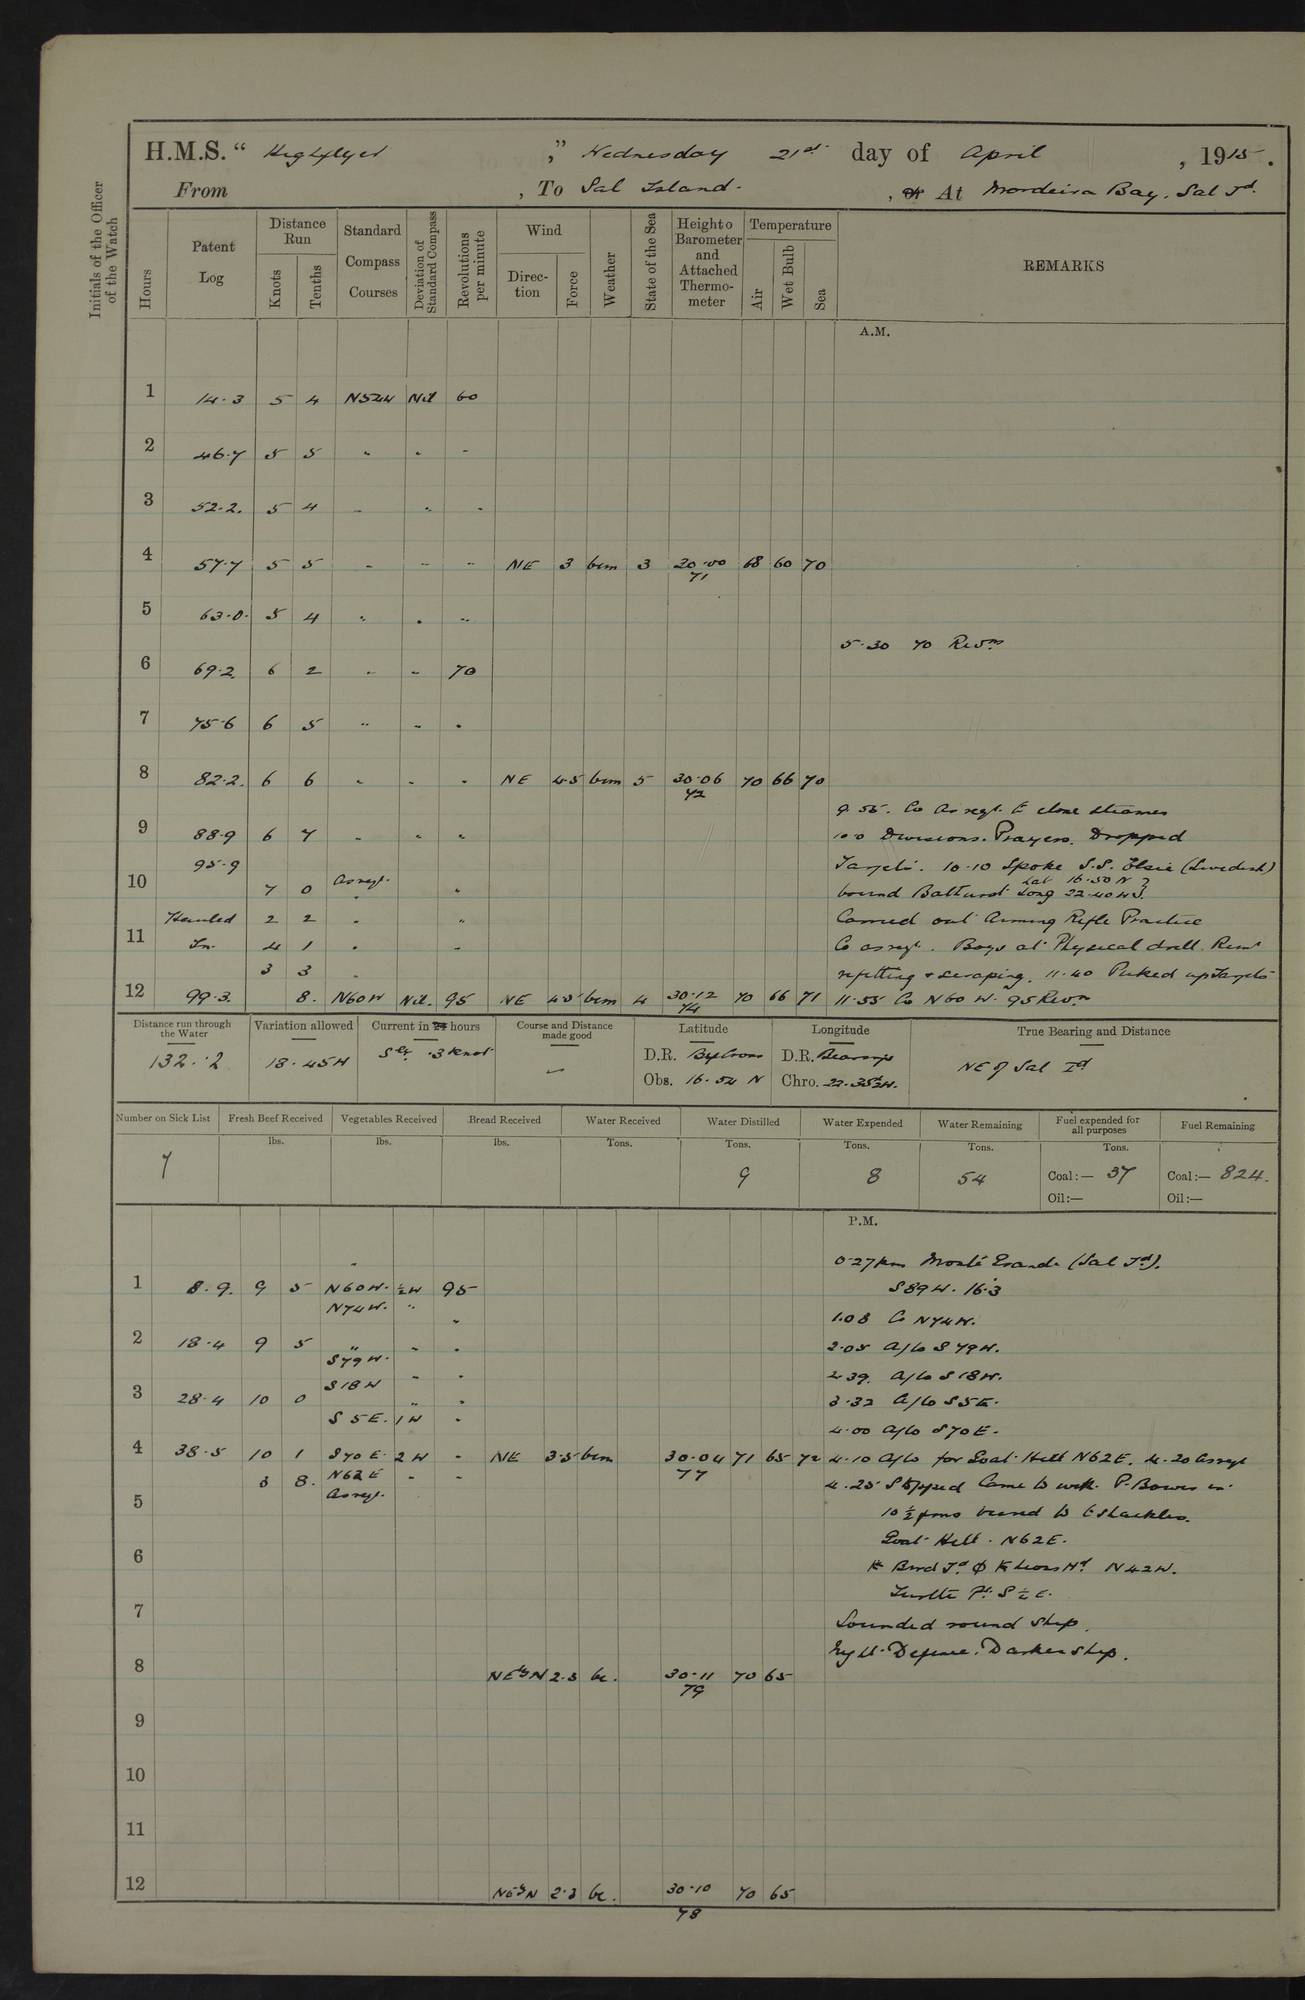 H.M.S. " Highflyer ," Wednesday 21st day of April , 1915.
From , To Sal Island. , or At Mordeira Bay. Sal Id.
Initials of the Officer of the Watch
Hours
Patent Log
Distance Run
Knots
Tenths
Standard Compass Courses
Deviation of Standard Compass
Revolutions per minute
Wind
Direction
Force
Weather
State of the Sea
Height o Barometer and Attached Thermometer
Temperature
Air
Wet Bulb
Sea
REMARKS
A.M.
1 14.3 5 4 N52W Nil 60
2 46.7 5 5 " " "
3 52.2. 5 4 " " "
4 57.7 5 5 " " " NE 3 bcm 3 30.00 68 60 70
71
5 63.0. 5 4 " " "
5.30 70 Revns
6 69.2. 6 2 " " 70
7 75.6 6 5 " " "
8 82.2. 6 6 " " " NE 4.5 bcm 5 30.06 70 66 70
72
9.55. Co As reqt. to close steamer
9 88.9 6 7 " " " 10.0 Divisions. Prayers. Dropped
95.9 Targets. 10.10 Spoke S.S. Elsie (Swedish)
10 7 0 As reqt. " bound Bathurst Lat 16.50 N Long 22.40 W
Hauled 2 2 " " Carried out Aiming Rifle Practice
11 In. 4 1 " " Co as reqt. Boys at Physical drill. Remr
3 3 " refitting & scraping. 11.40 Picked up Targets
12 99.3. 8. N60W Nil. 95 NE 4.5 bcm 4 30.12 70 66 71 11.55 Co N60 W. 95 Revns
74
Distance run through the Water
132.2
Variation allowed
18.45W
Current in 24 hours
Sly .3 knot
Course and Distance made good
Latitude
D.R. By Cross
Obs. 16.54 N
Longitude
D.R. Bearings
Chro. 22.35½W.
True Bearing and Distance
NE of Sal Id
Number on Sick List
7
Fresh Beef Received
lbs.
Vegetables Received
lbs.
Bread Received
lbs.
Water Received
Tons.
Water Distilled
Tons.
9
Water Expended
Tons.
8
Water Remaining
Tons.
54
Fuel expended for all purposes
Tons.
Coal:— 37
Oil:—
Fuel Remaining
Coal:— 824.
Oil:—
P.M.
0.27pm Monte Grande (Sal Id).
1 8.9. 9 5 N60W. ½W 95 S89W. 16.3
N74W. " "
1.08 Co N74W.
2 18.4 9 5 " " " 2.05 A/Co S79W.
S79W.
S18W " " 2.39. A/Co S18W.
3 28.4 10 0 " " 3.32 A/Co S5E.
S5E. 1W "
4.00 A/Co S70E.
4 38.5 10 1 S70E. 2W " NE 3.5 bcm 30.04 71 65 72 4.10 A/Co for Goat Hill N62E. 4.20 As reqt
77
3 8. N62E " " 4.25 Stopped Came to with P. Bower in
As reqt.
5 10½ fms veered to 6 shackles.
Goat Hill. N62E.
6 Bird Id. ϕ Lions Hd. N42W.
Turtle Pt. S½E.
7 Sounded round Ship.
Night Defence. Darken Ship.
8 NEbyN 2.3 bc. 30.11 70 65
79
9
10
11
12 NEbyN 2.3 bc. 30.10 70 65
78